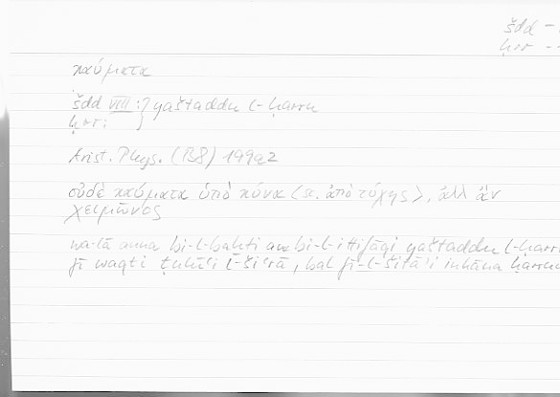 šdd –
ḥrr –
καύματα
šdd VIII :} yaštaddu l-ḥarru
ḥrr: }
Arist. Phys. (B8) 199a2
οὐδὲ καύματα ὑπὸ κύνα <sc. ἀπὸ τύχης>, ἀλλ' ἂν
χειμῶνος
wa-lā anna bi-l-baḫti au bi-l-ittifāqi yaštaddu l-ḥarru
fī waqti ṭulūʿi l-šiʿrā, bal fī-l-šitāʾi in kāna ḥarrun